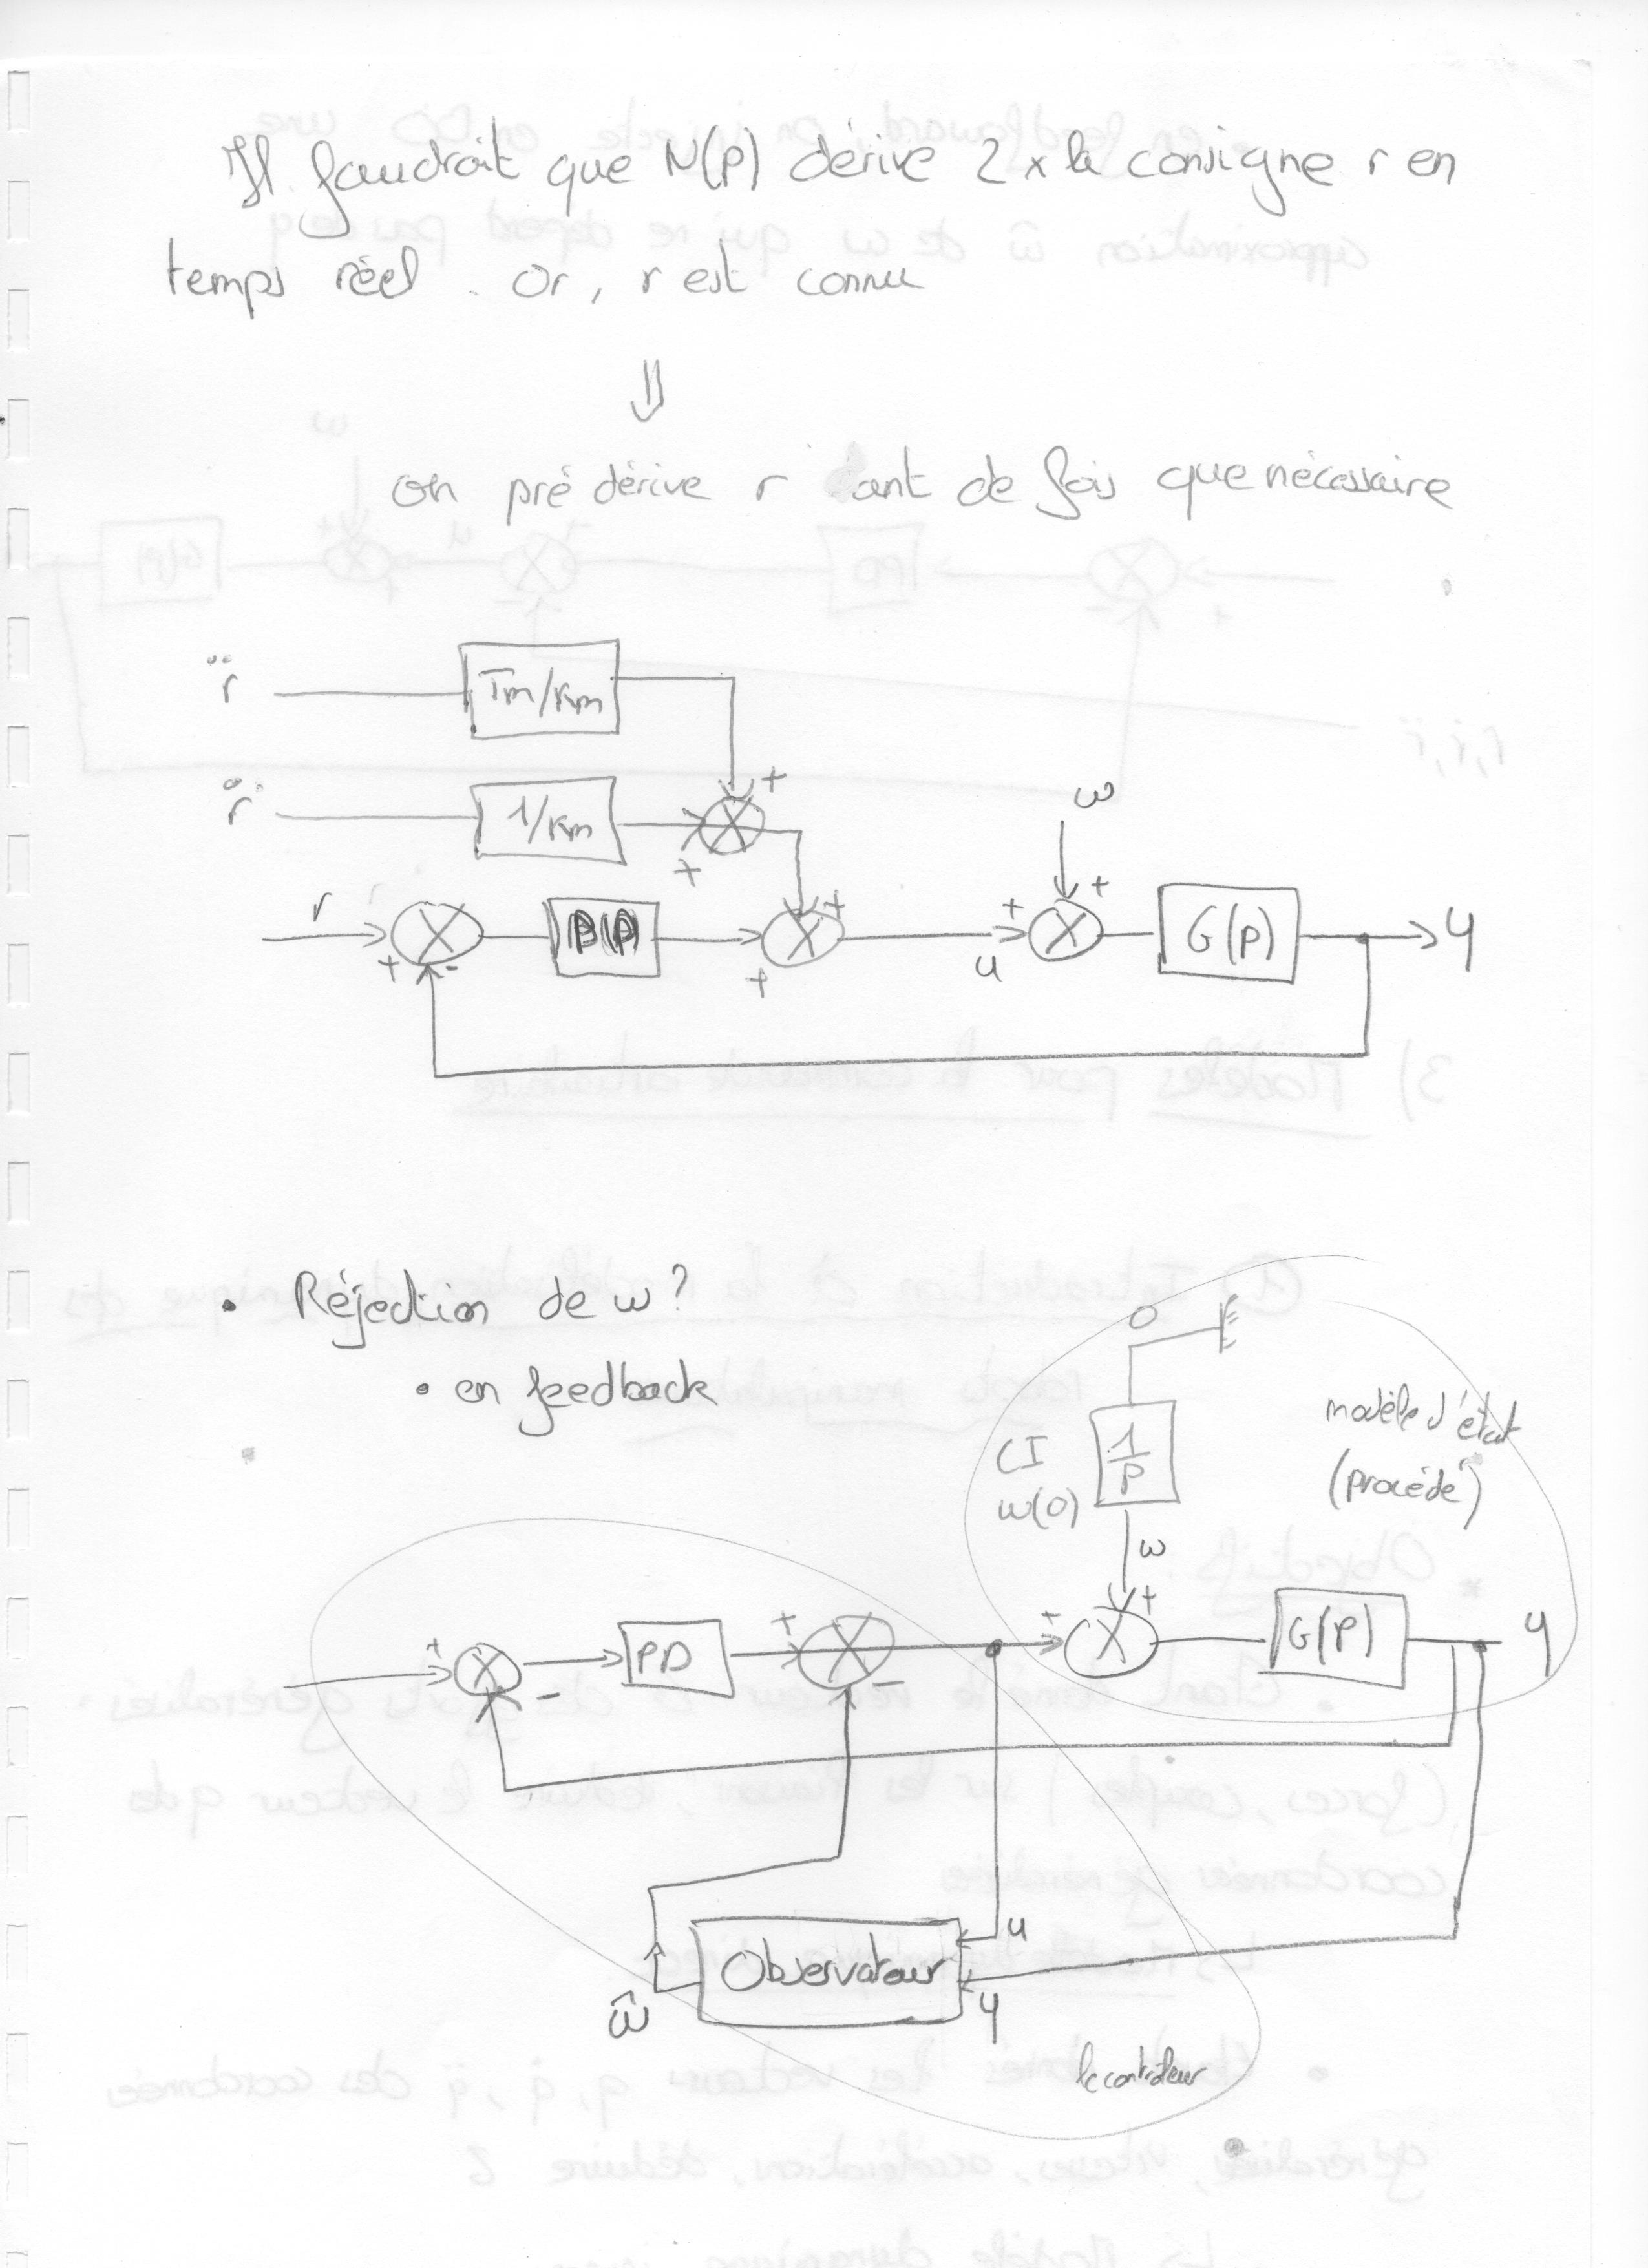 Il faudrait que N(p) dérive 2 x la consigne r en
temps réel. Or, r est connu
⇓
on pré dérive r ant de fois que nécessaire
r̈
Tm/Km
+
ṙ
1/Km
+
ω
r
+
-
+
+
+
u
+
G(p)
y
• Réjection de ω ?
• en feedback
0
CI
ω(0)
1/p
modèle d'état
(procédé)
ω
+
-
PD
+
-
+
+
G(p)
y
Observateur
u
y
ω̂
le contrôleur